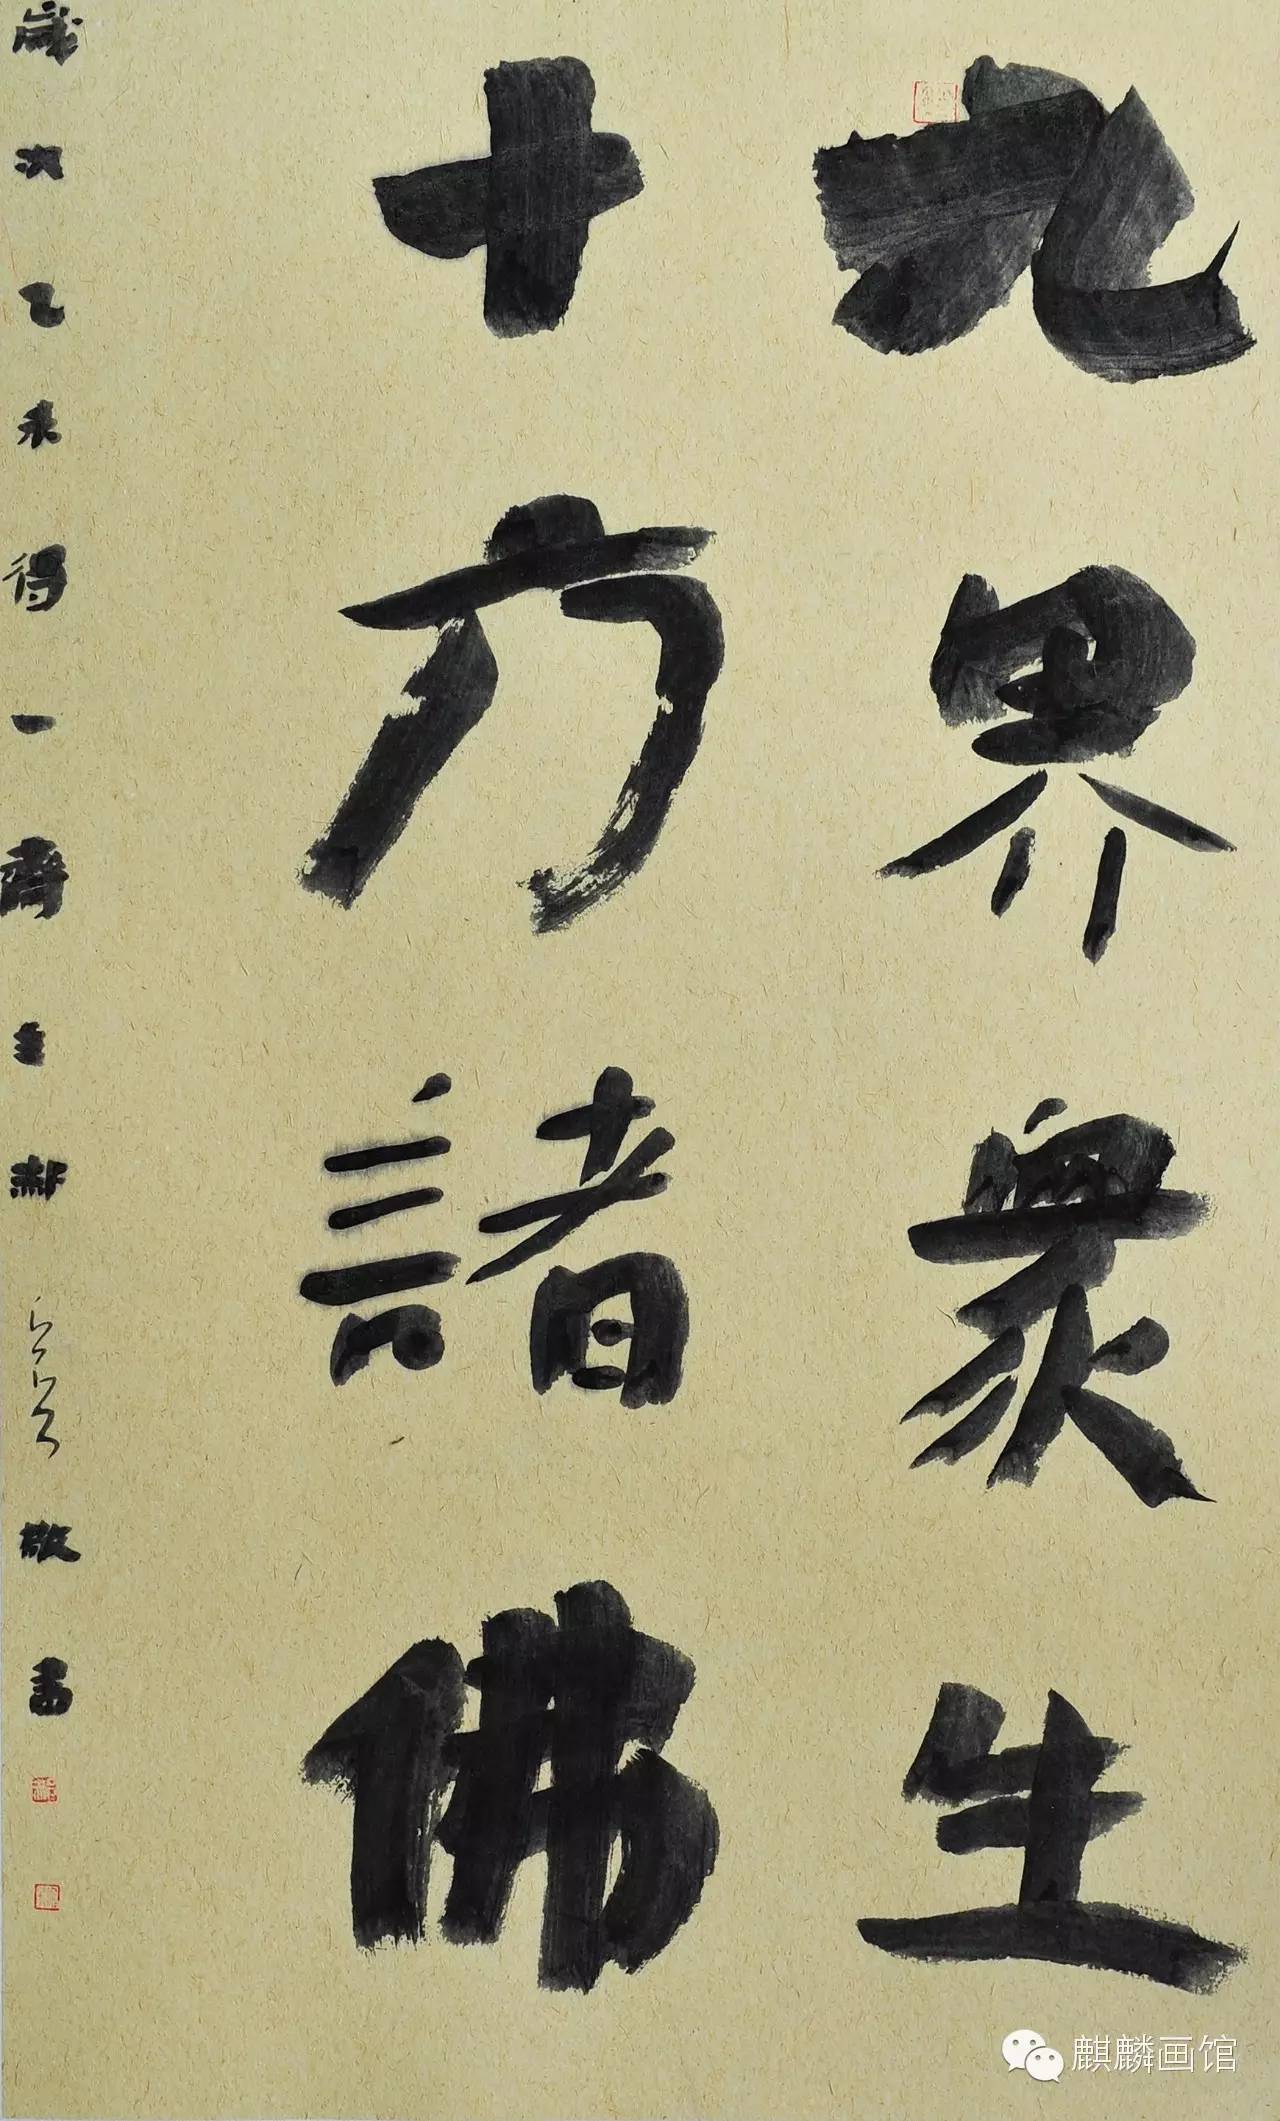 九界眾生
十方諸佛
歲次乙未得一齋主郝
敬書
麒麟画馆